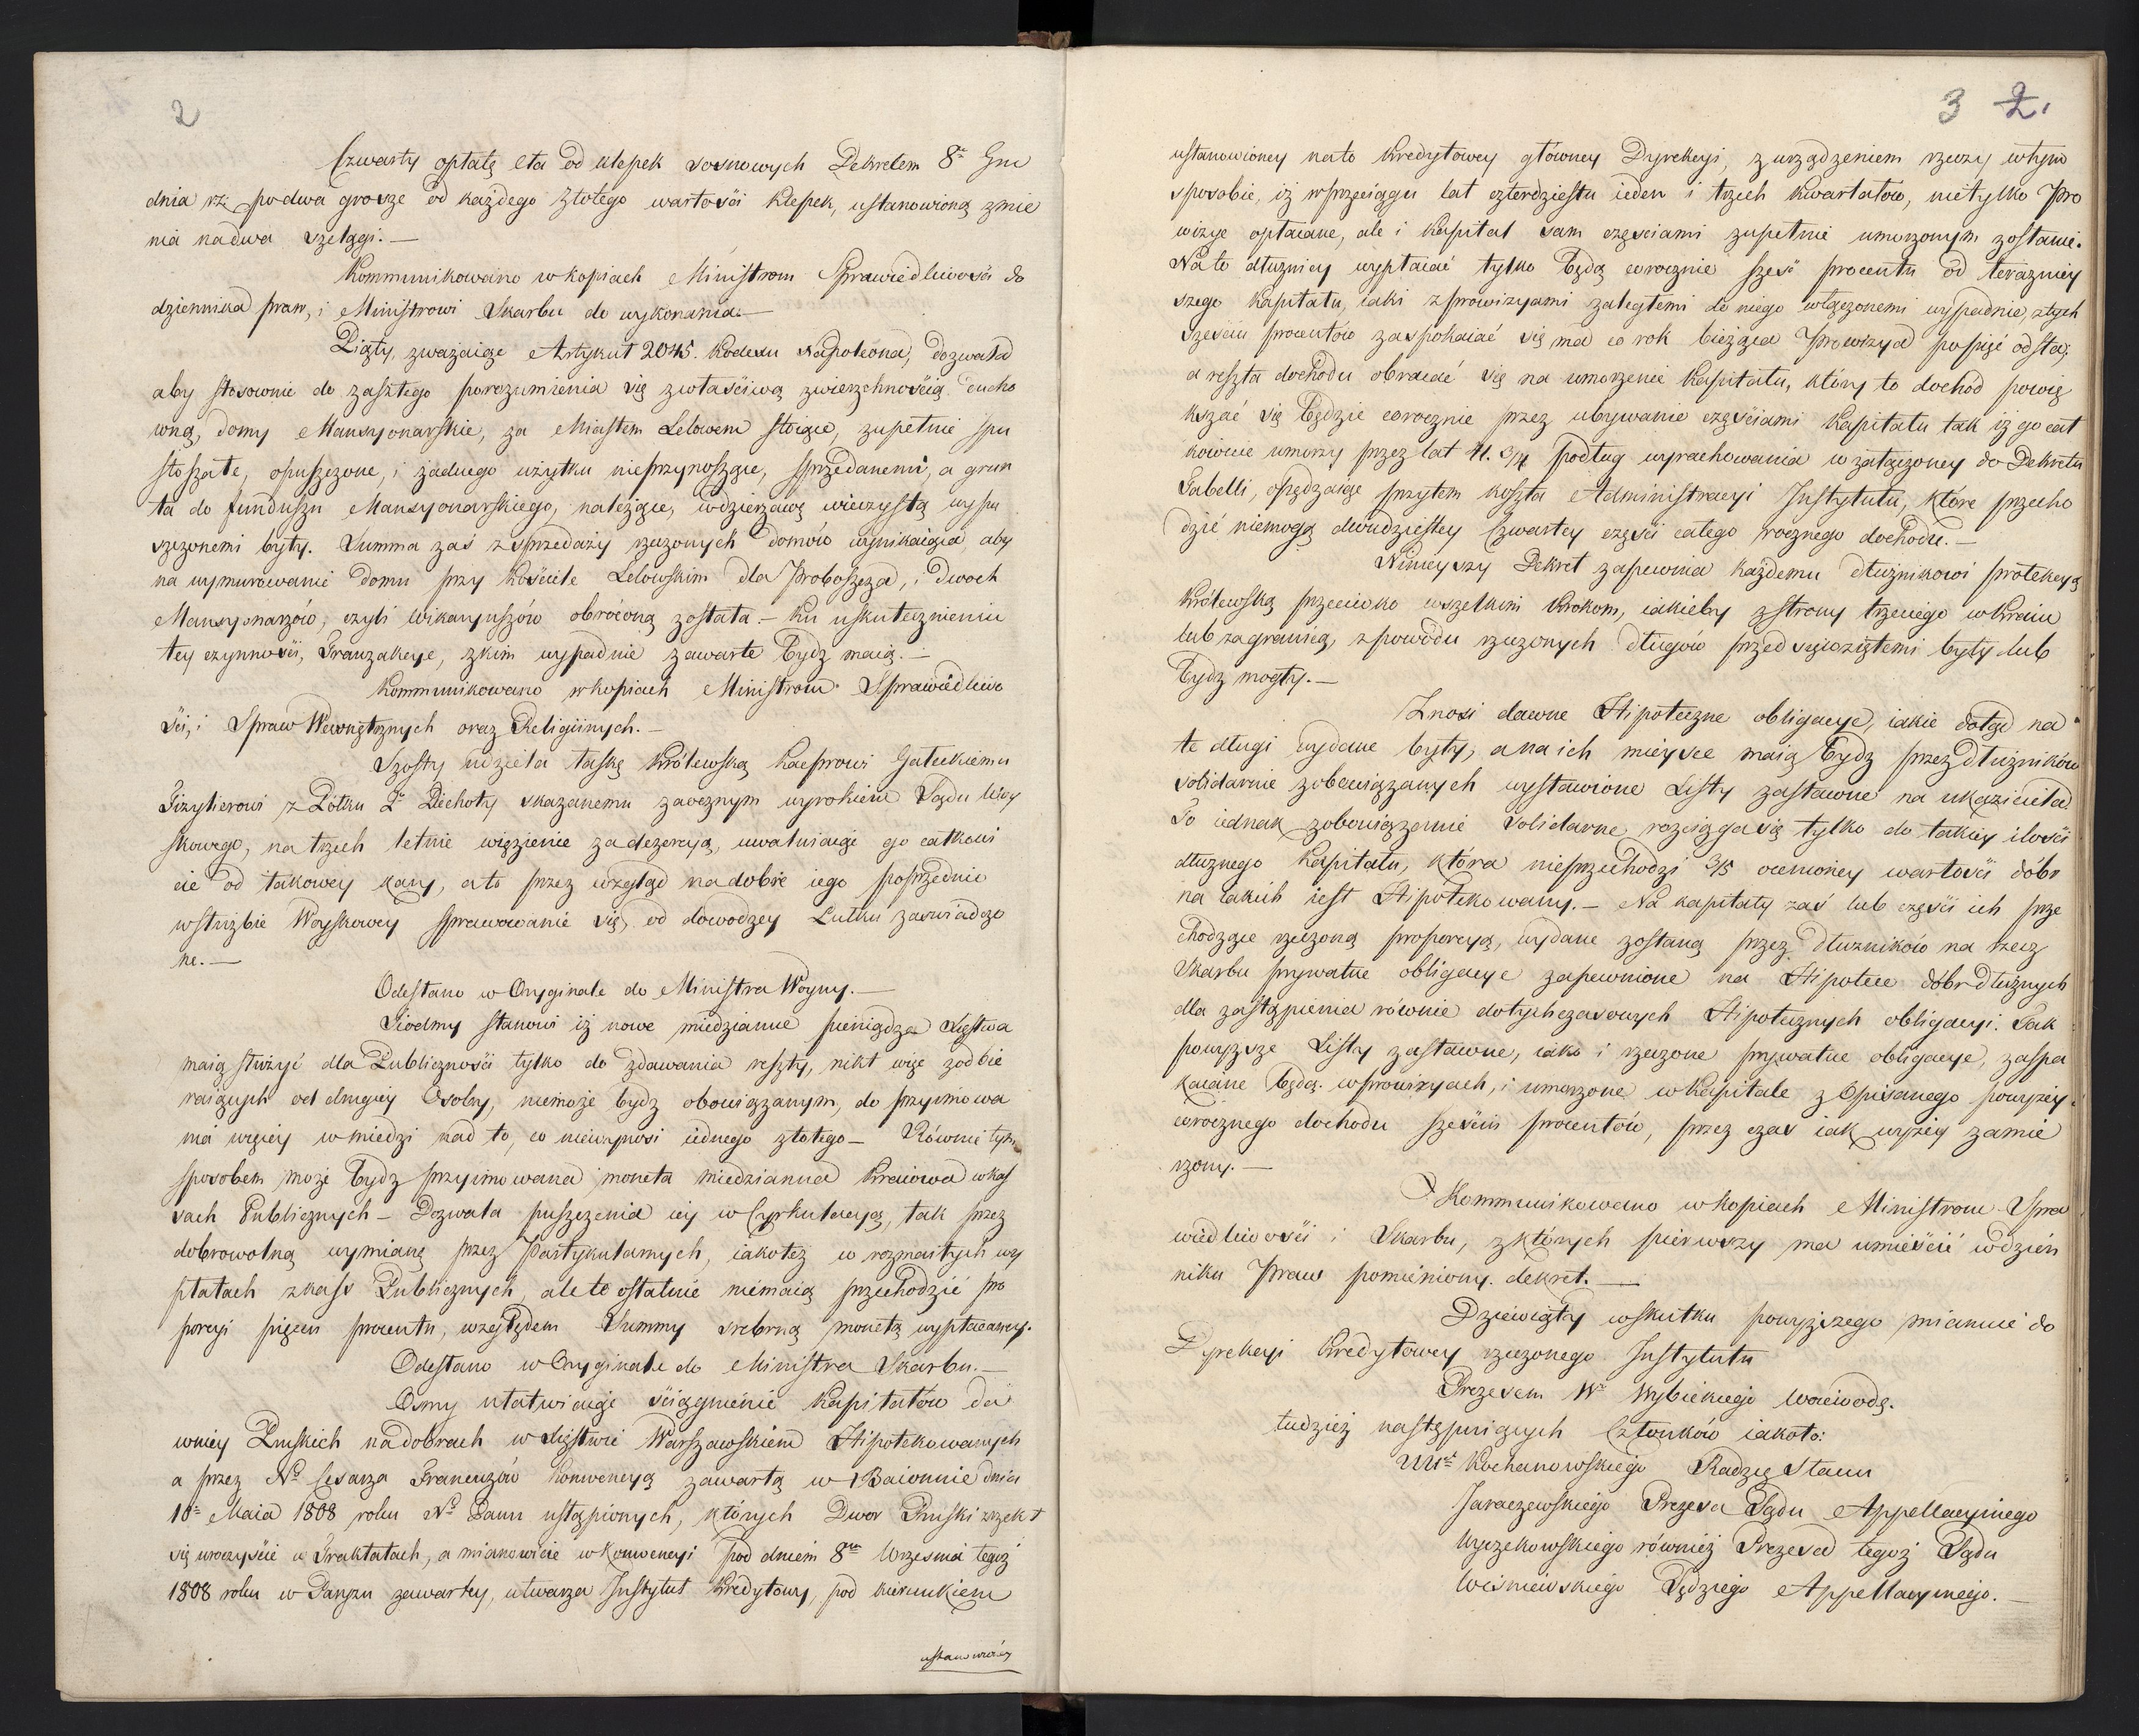 2
Czwarty opłatę cła od klepek sosnowych Dekretem 8º Gru
dnia rz. podwa grosze od każdego złotego wartości klepek, ustanowioną zmie
nia nadwa szelągi. —
Kommunikowano w kopiach Ministrom Sprawiedliwości do
dziennika praw, i Ministrowi Skarbu do wykonania. —
Piąty, zważaiąc Artykuł 2045. Kodexu Napoleona, dozwala
aby stosownie do zaszłego porozumienia się zwłaściwą zwierzchnością ducho
wną, domy Mansyonarskie, za Miastem Lelowem stoiące, zupełnie spu
stoszałe, opuszczone, i żadnego użytku nieprzynoszące, sprzedanemi, a grun
ta do funduszu Mansyonarskiego, należące, wdzierżawę wieczystą wypu
szczonemi były. Summa zaś z sprzedaży rzeczonych domów wynikaiąca, aby
na wymurowanie domu przy Kościele Lelowskim dla Proboszcza, i dwoch
Mansyonarzów, czyli wikaryuszów obróconą została. — Ku uskutecznieniu
tey czynności, Tranzakcye, zkim wypadnie zawarte bydz maią. —
Kommunikowano w kopiach Ministrom Sprawiedliwo
ści, i Spraw Wewnętrznych oraz Religiinych. —
Szosty udziela łaskę Królewską Kacprowi Gałeckiemu
Fizylierowi z Półku 2º Piechoty skazanemu zaocznym wyrokiem Sądu Woy
skowego, na trzech letnie więzienie za dezercyą, uwalniaiąc go całkowi
cie od takowey kary, a to przez wzgląd na dobre iego poprzednio
w służbie Woyskowey sprawowanie się, od dowodzcy Pułku zaświadczo
ne. —
Odesłano w Oryginale do Ministra Woyny. —
Siodmy stanowi iż nowe miedzianne pieniądze Xięstwa
maią służyć dla Publiczności tylko do zdawania reszty, nikt więc zodbie
raiących od drugiey Osoby, niemoże bydz obowiązanym, do przyimowa
nia więcey w miedzi nad to, co niewynosi iednego złotego — Równie tym
sposobem może bydz przyimowana moneta miedzianna Kraiowa w kas
sach Publicznych — Dozwala puszczenia iey w Cyrkulacyą, tak przez
dobrowolną wymianę przez Partykularnych, iakoteż w rozmaitych wy
płatach z kass Publicznych, ale te ostatnie niemaią przechodzić pro
porcyi pięciu procentu, względem Summy srebrną monetą wypłacaney.
Odesłano w Oryginale do Ministra Skarbu. —
Osmy ułatwiaiąc ściągnienie Kapitałów da
wniey Pruskich na dobrach w Xięstwie Warszawskiem Hipotekowanych
a przez Nº Cesarza Francuzów Konwencyą zawartą w Baionnie dnia
10º Maia 1808 roku Nº Panu ustąpionych, których Dwor Pruski zrzekł
się uroczyście w Traktatach, a mianowicie w Konwencyi pod dniem 8ᵐ Września tegoż
1808 roku w Paryżu zawartey, utwarza Instytut Kredytowy, pod kierunkiem
ustanowioney
3 2.
ustanowioney nato Kredytowey główney Dyrekcyi, z urządzeniem rzeczy wtym
sposobie, iż w przeciągu lat czterdziestu ieden i trzech kwartałow, nietylko Pro
wizye opłacane, ale i Kapitał sam częściami zupełnie umorzonym zostanie.
Na to dłużnicy wypłacać tylko będą corocznie sześć procentu od teraźniey
szego Kapitału, iaki z prowizyami zaległemi do niego włączonemi wypadnie, z tych
sześciu procentów zaspokaiać się ma co rok bieżąca Prowizya po pięć od sta;
a reszta dochodu obracać się na umorzenie Kapitału, który to dochod powię
kszać się będzie corocznie przez ubywanie częściami Kapitału tak iż go cał
kowicie umorzy przez lat 41. 3/4 podług wyrachowania w załączoney do Dekretu
Tabelli, opędzaiąc przytem koszta Administracyi Instytutu, które przecho
dzić niemogą dwudziestey Czwartey części całego rocznego dochodu. —
Ninieyszy Dekret zapewnia każdemu dłużnikowi protekcyą
Królewską przeciwko wszelkim krokom, iakieby z strony trzeciego w Kraiu
lub zagranicą, z powodu rzeczonych długów przed sięwziętemi były lub
bydz mogły. —
Znosi dawne Hipoteczne obligacye, iakie dotąd na
te długi wydane były, a na ich mieysce maią bydz przez dłużników
solidarnie zobowiązanych wystawione Listy zastawne na ukaziciela
To iednak zobowiązanie solidarne rozciąga się tylko do takiey ilości
dłużnego Kapitału, która nieprzechodzi 3/5 ocenioney wartości dóbr
na iakich iest Hipotekowany. — Na kapitały zaś lub części ich prze
chodzące rzeczoną proporcyą, wydane zostaną przez dłużników na rzecz
Skarbu prywatne obligacye zapewnione na Hipotece dóbr dłużnych
dla zastąpienia równie dotychczasowych Hipotecznych obligacyi. Tak
powyższe Listy zastawne, iako i rzeczone prywatne obligacye, zaspa
kaiane będą w prowizyach, i umorzone w Kapitale z Opisanego powyżey
corocznego dochodu sześciu procentów, przez czas iak wyżey zamie
rzony. —
Kommunikowano w kopiach Ministrom Spra
wiedliwości i Skarbu, z których pierwszy ma umieścić w dzien
niku Praw pomieniony dekret. —
Dziewiąty w skutku powyższego mianuie do
Dyrekcyi Kredytowey rzeczonego Instytutu
Prezesem Wº Wybickiego Woiewodę.
tudzież następuiących Członków iakoto:
WWº Kochanowskiego Radzcę Stanu
Jaraczewskiego Prezesa Sądu Appellacyinego
Wyczekowskiego również Prezesa tegoż Sądu
Wiśniewskiego Sędziego Appellacyinego. —